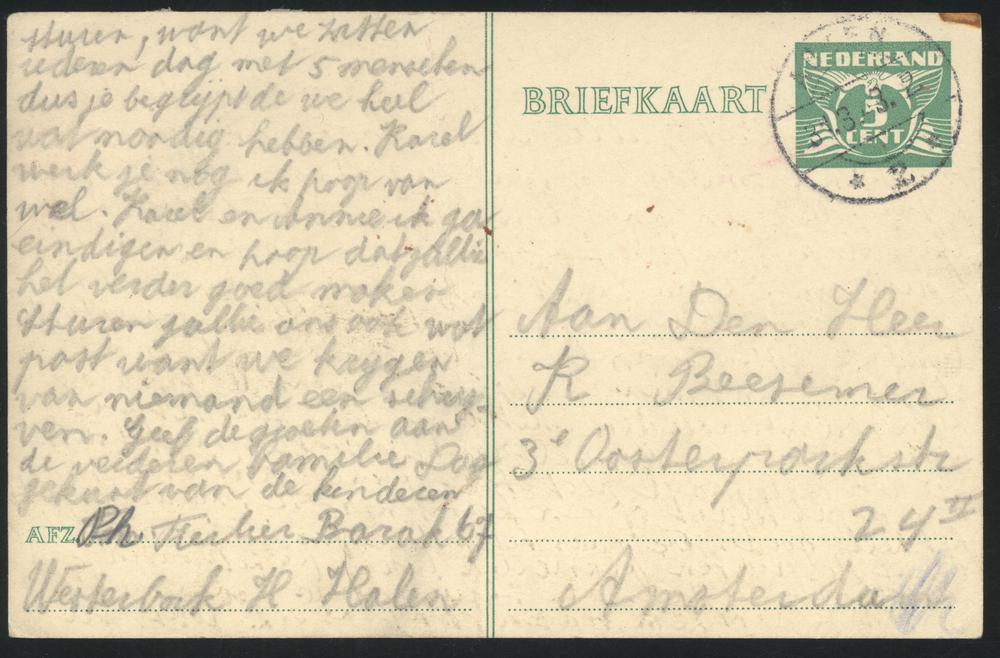 sturen, want we zitten
iederen dag met 5 menschen
dus je begrypt de we heel
wat noodig hebben. Karel
werk je nog ik hoop van
wel. Karel en Annie ik ga
eindigen en hoop dat jullie
het verder goed maken
sturen jullie ons ook wat
post want we krygen
van niemand een schry-
ven. Geef de groeten aan
de verderen familie Dag
gekust van de kinderen
AFZ. Ph. Fischer Barak 67
Westerbork H. Halen
BRIEFKAART
NEDERLAND
5
CENT
Aan Den Heer
K Beesemer
3e Oosterparkstr
24 II
Amsterdam